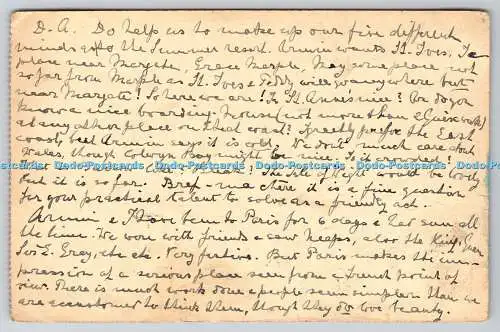 D. A. Do help us to make up our five different
minds as to the Summer resort. Armin wants St. Ives, I a
place near Margate, Grace Marple, May some place not
so far from Marple as St. Ives & Teddy will go anywhere but
near Margate! So here we are! Is St. Annes nice? Or do you
know a nice boarding-house (not more than 2 Guis a week)
at any other place on that coast? I really prefer the East
coast, but Armin says it is cold. We don't much care about
Wales, though Colwyn Bay might
The Isle of Wight would be lovely
but it is so far. Bref - ma chère it is a fine question
for your practical talent to solve as a friendly act.
Armin & I have been to Paris for 6 days & had sun all
the time. We were with friends & saw heaps, also the King, Queen
Sir E. Grey, etc etc. Very festive. But Paris makes the im-
pression of a serious place seen from a French point of
view. There is much work done & people seem simpler than we
are accustomed to think them, though they do love beauty.